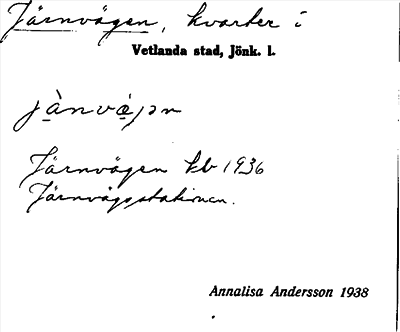 Järnvägen, kvarter i
Vetlanda stad, Jönk. l.
Järnvägen kb 1936
Järnvägsstationen.
Annalisa Andersson 1938